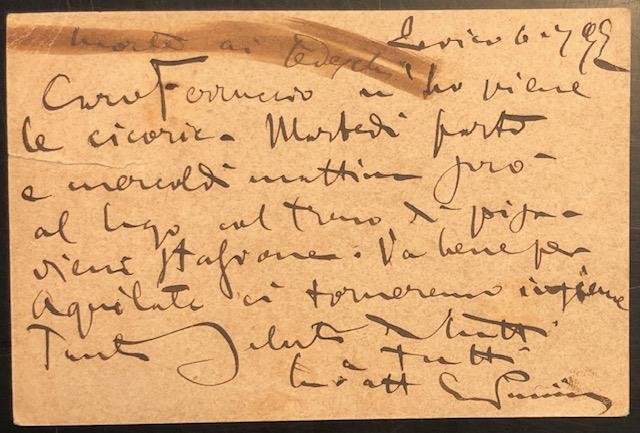 morte ai tedeschi
Levico 6-7 92
Caro Ferruccio n'ho piene
le cicorie. Martedì parto
e mercoldì mattina però
al lago col treno di
viene stagione. Va bene per
Aquilata ci torneremo insieme
Tanti saluti a tutti
tutti